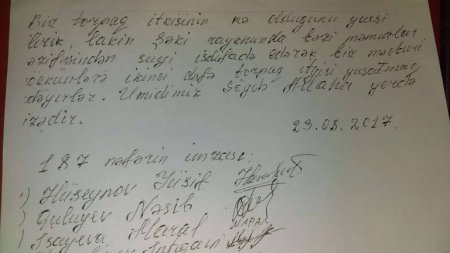 Biz torpaq itkisinin nə olduğunu yaxşı
bilirik, lakin Şəki rayonunda bəzi məmurlar
vəzifəsindən suyi istifadə edərək, biz məcburi
köçkünlərə ikinci dəfə torpaq itgisi yaşatmaq
dəyirlər. Umidimiz Sizə Allaha yerdə
Sizədir.
23.08.2017.
187 nəfərin imzası:
) Hüseynov Yusif
) Quluyev Nəsib
) İsayeva Maral MARAL